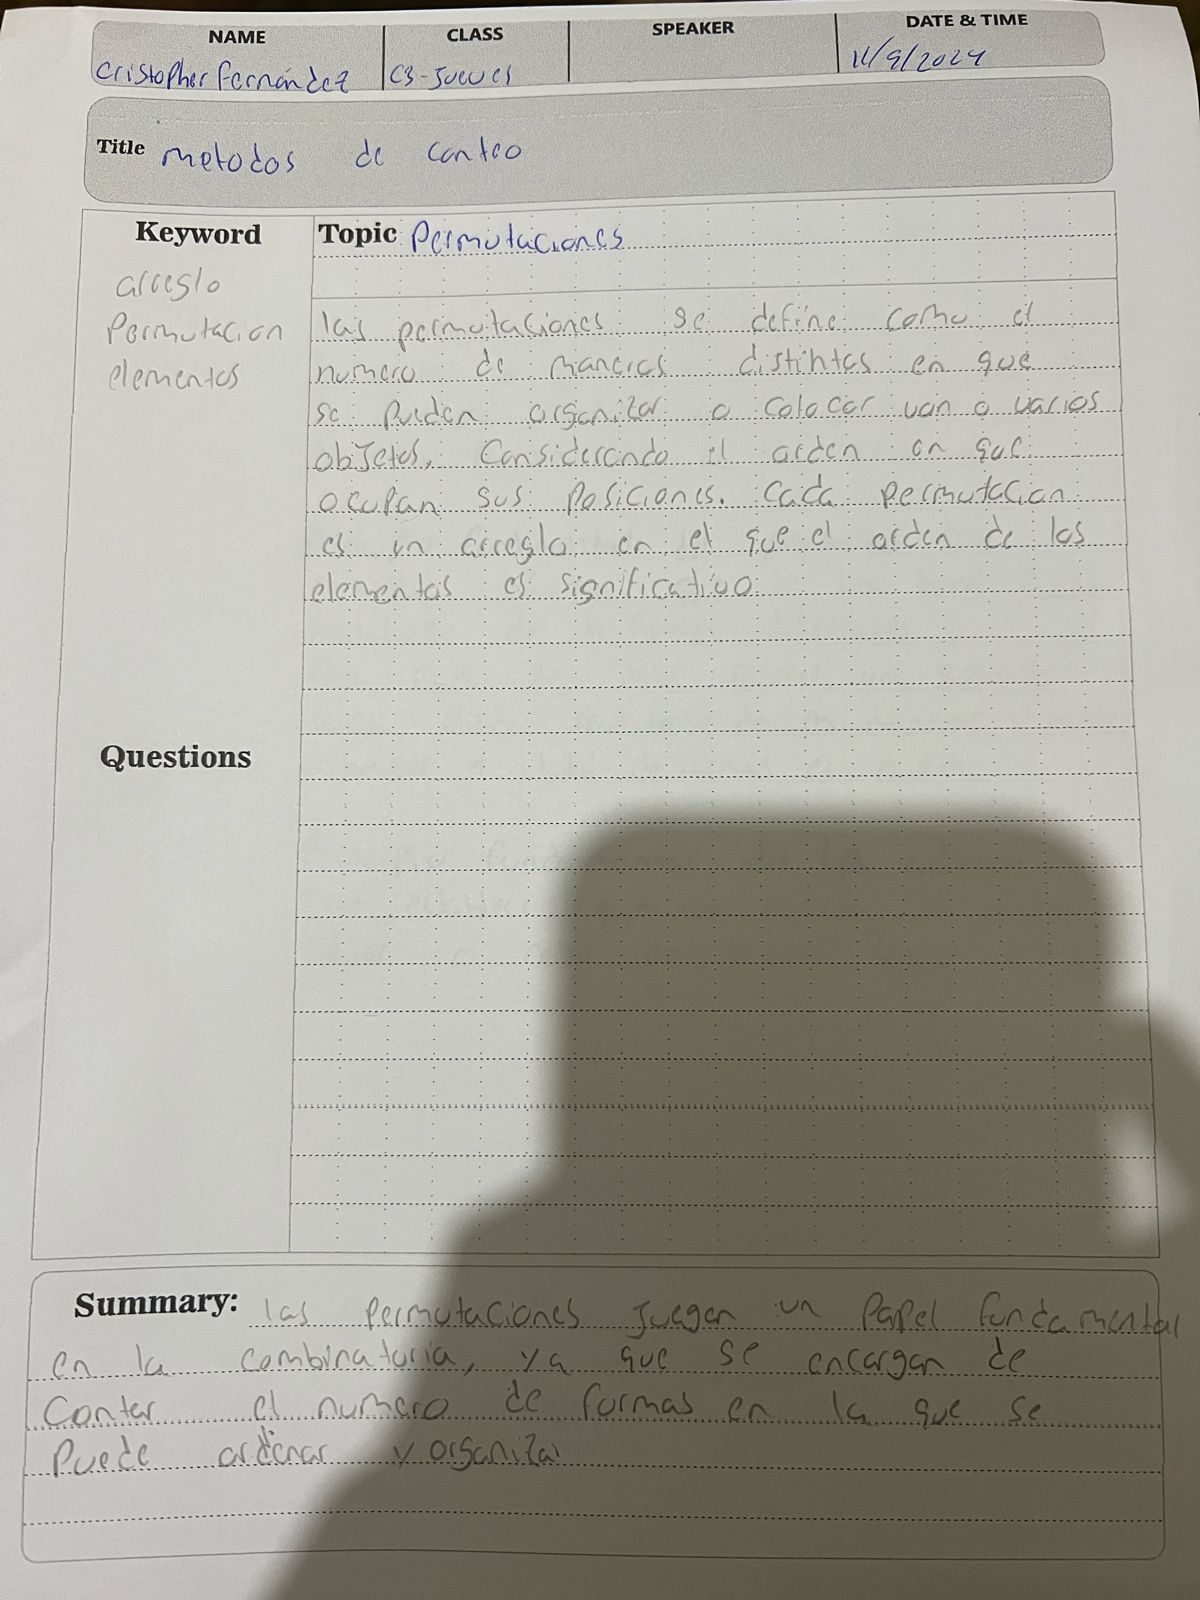 NAME CLASS SPEAKER DATE & TIME
Cristopher Fernandez C3-Jueves 11/9/2024
Title metodos de conteo
Keyword
arreglo
Permutacion
elementos
Topic Permutaciones
las permutaciones se define como el
numero de maneras distintas en que
se pueden organizar o colocar uan o varios
objetos, Considerando el orden en que
ocupan sus posiciones. Cada permutacion
es un arreglo en el que el orden de los
elementos es significativo
Questions
Summary: las Permutaciones Juegan un Papel fundamental
en la combinatoria, ya que se encargan de
Contar el numero de formas en la que se
Puede ordenar y organizar